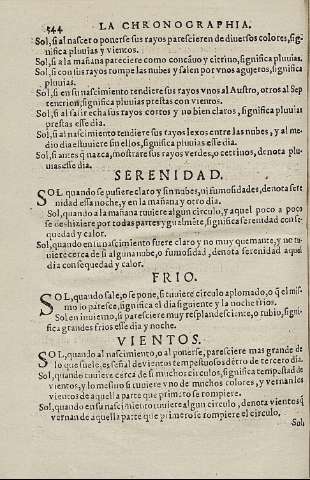 544 LA CHRONOGRAPHIA.
Sol, si al nascer o ponerse sus rayos parescieren de diuersos colores, sig-
nifica pluuias y vientos.
Sol, si a la mañana pareciere como concauo y citrino, significa pluuias.
Sol, si con sus rayos rompe las nubes y salen por vnos agujeros, significa
pluuias.
Sol, si en su nascimiento tendiere sus rayos vnos al Austro, otros al Sep
tentrion, significa pluuias prestas con vientos.
Sol, si al salir echa sus rayos cortos y no bien claros, significa pluuias
prestas esse dia.
Sol, si al nascimiento tendiere sus rayos lexos entre las nubes, y al me-
dio dia estuuiere sin ellos, significa pluuias esse dia.
Sol, si antes q̃ nazca, mostrare sus rayos verdes, o cetrinos, denota plu-
uias esse dia.
SERENIDAD.
SOL quando se pusiere claro y sin nubes, ni fumosidades, denota sere
nidad essa noche, y en la mañana y otro dia.
Sol, quando a la mañana tuuiere algun circulo, y aquel poco a poco
se deshiziere por todas partes ygualmẽte, significa serenidad con se-
quedad y calor.
Sol, quando en su nascimiento fuere claro y no muy quemante, y no tu-
uiere cerca de si alguna nube, o fumosidad, denota serenidad aquel
dia con sequedad y calor.
FRIO.
SOL, quando sale, o se pone, si tuuiere circulo aplomado, o q̃ el mis-
mo lo paresce, significa el dia siguiente y la noche frios.
Sol en inuierno, si pareciere muy resplandesciente, o rubio, signi-
fica grandes frios esse dia y noche.
VIENTOS.
SOL, quando al nascimiento, o al ponerse, paresciere mas grande de
lo que suele, es señal de vientos tempestuosos dẽtro de tercero dia.
Sol, quando tuuiere cerca de si muchos circulos, significa tempestad de
vientos, y lo mesmo si tuuiere vno de muchos colores, y vernan los
vientos de aquella parte que primero se rompiere.
Sol, quando en su nascimiento tuuiere algun circulo, denota vientos q̃
vernan de aquella parte que primero se rompiere el circulo.
Sol,